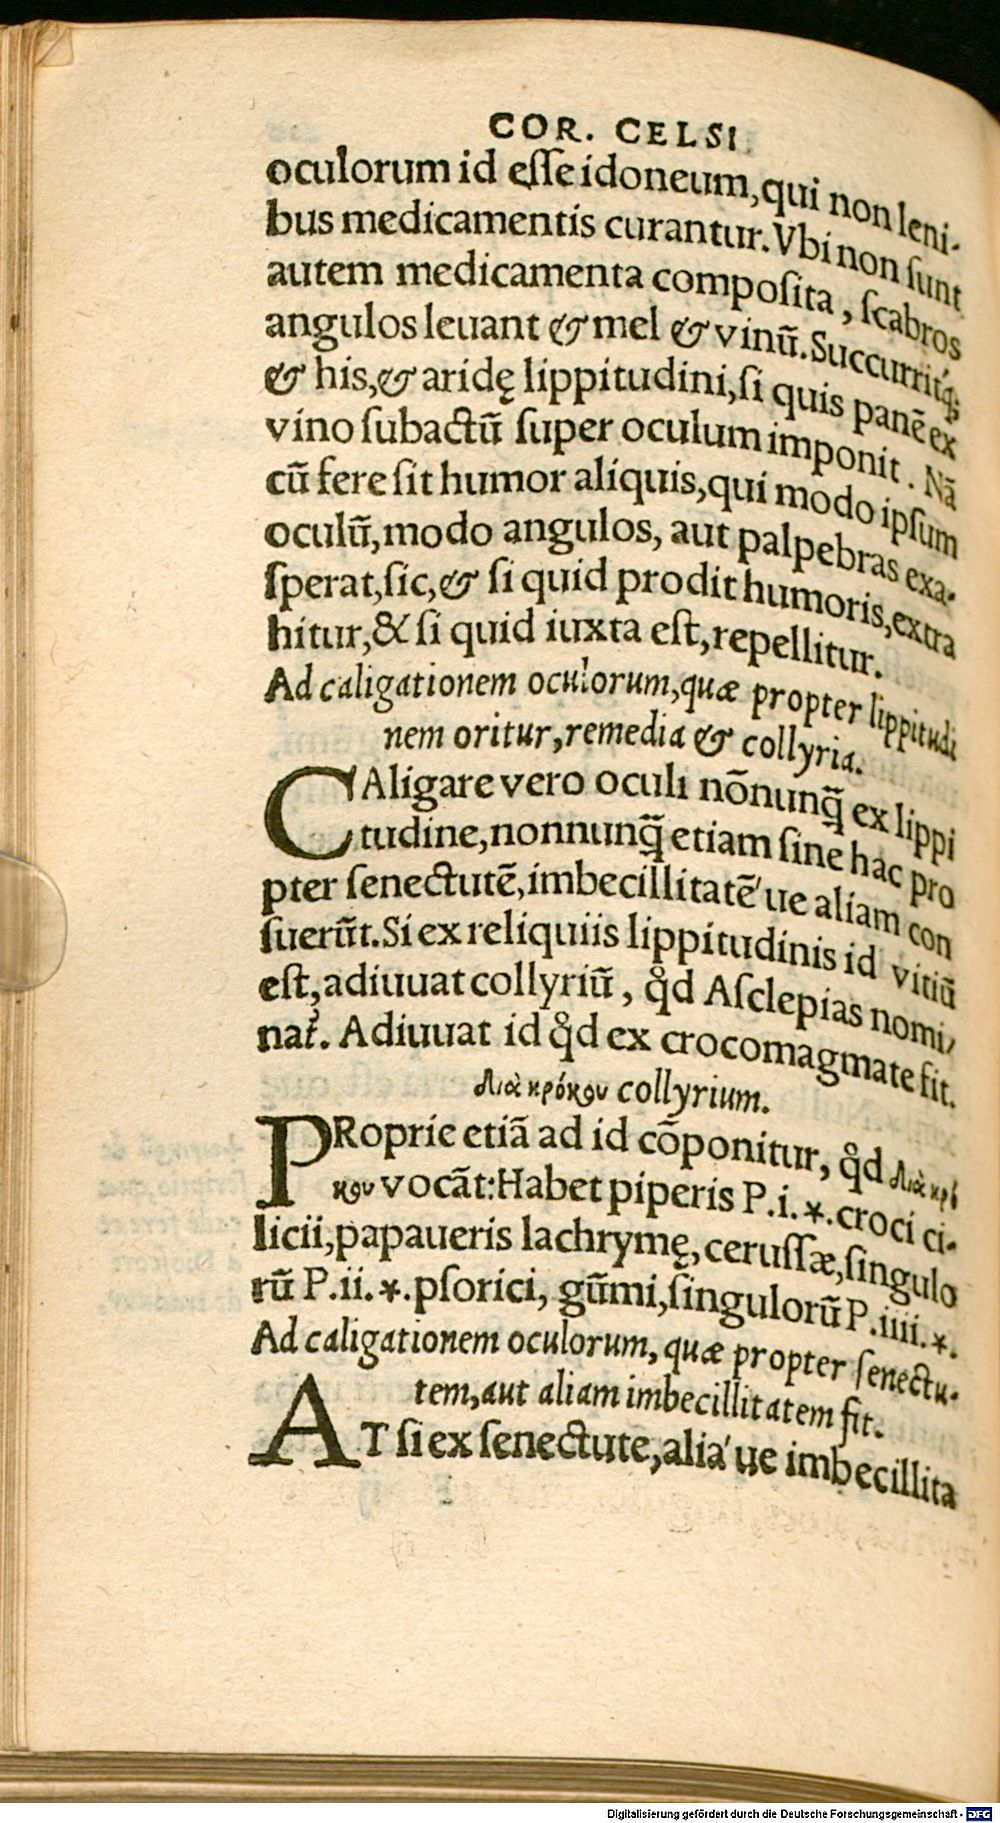 COR. CELSI.
oculorum id eſſe idoneum, qui non leni-
bus medicamentis curantur. Vbi non ſunt
autem medicamenta compoſita, ſcabros
angulos leuant & mel & vinũ. Succurritq́;
& his, & aridę lippitudini, ſi quis panẽ ex
vino ſubactũ ſuper oculum imponit. Nã
cũ fere ſit humor aliquis, qui modo ipſum
oculũ, modo angulos, aut palpebras exa-
ſperat, ſic, & ſi quid prodit humoris, extra
hitur, & ſi quid iuxta eſt, repellitur.
Ad caligationem oculorum, quæ propter lippitudi
nem oritur, remedia & collyria.
CAligare vero oculi nõnunq̃ ex lippi
tudine, nonnunq̃ etiam ſine hac pro
pter ſenectutẽ, imbecillitatẽ' ue aliam con
ſuerũt. Si ex reliquiis lippitudinis id vitiũ
eſt, adiuuat collyriũ, q̊d Aſclepias nomi-
nat́. Adiuuat id q̊d ex crocomagmate fit.
Διὰ κρόκου collyrium.
PRoprie etiã ad id cõponitur, q̊d Διὰ κρό
κου vocãt: Habet piperis P.i.*. croci ci-
licii, papaueris lachrymę, ceruſſæ, ſingulo
rũ P.ii.*. pſorici, gũmi, ſingulorũ P.iiii.*.
Ad caligationem oculorum, quæ propter ſenectu-
tem, aut aliam imbecillitatem fit.
AT ſi ex ſenectute, alia' ue imbecillita
Digitalisierung gefördert durch die Deutsche Forschungsgemeinschaft - DFG